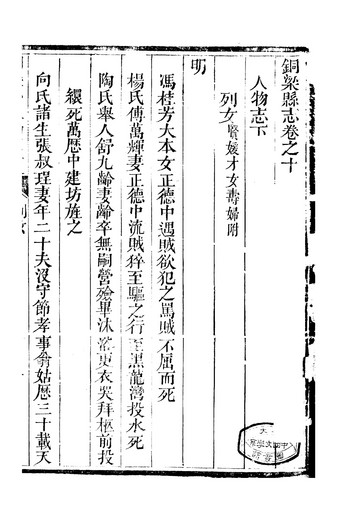 銅梁縣志卷之十
人物志下
列女賢媛才女壽婦附
明
馮桂芳大本女正德中遇賊欲犯之罵賊不屈而死
楊氏傅萬輝妻正德中流賊猝至驅之行至黑龍灣投水死
陶氏舉人舒九齡妻齡卒無嗣營殮畢沐浴更衣哭拜柩前投
繯死萬歷中建坊旌之
向氏諸生張叔珵妻年二十夫沒守節孝事翁姑歷三十載天